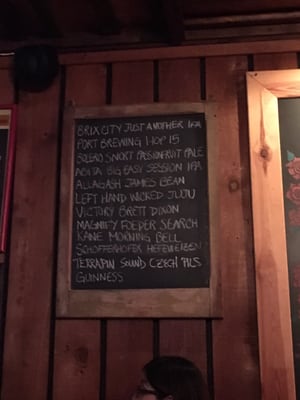 BRIX CITY JUST ANOTHER IPA
PORT BREWING HOP 15
BOLERO SNORT PASSIONFRUIT PALE
ABITA BIG EASY SESSION IPA
ALLAGASH JAMES BEAN
LEFT HAND WICKED JUJU
VICTORY BRETT DIXON
MAGNIFY FOEDER SEARCH
KANE MORNING BELL
SCHOFFERHOFER HEFEWEIZEN
TERRAPIN SOUND CZECH PILS
GUINNESS